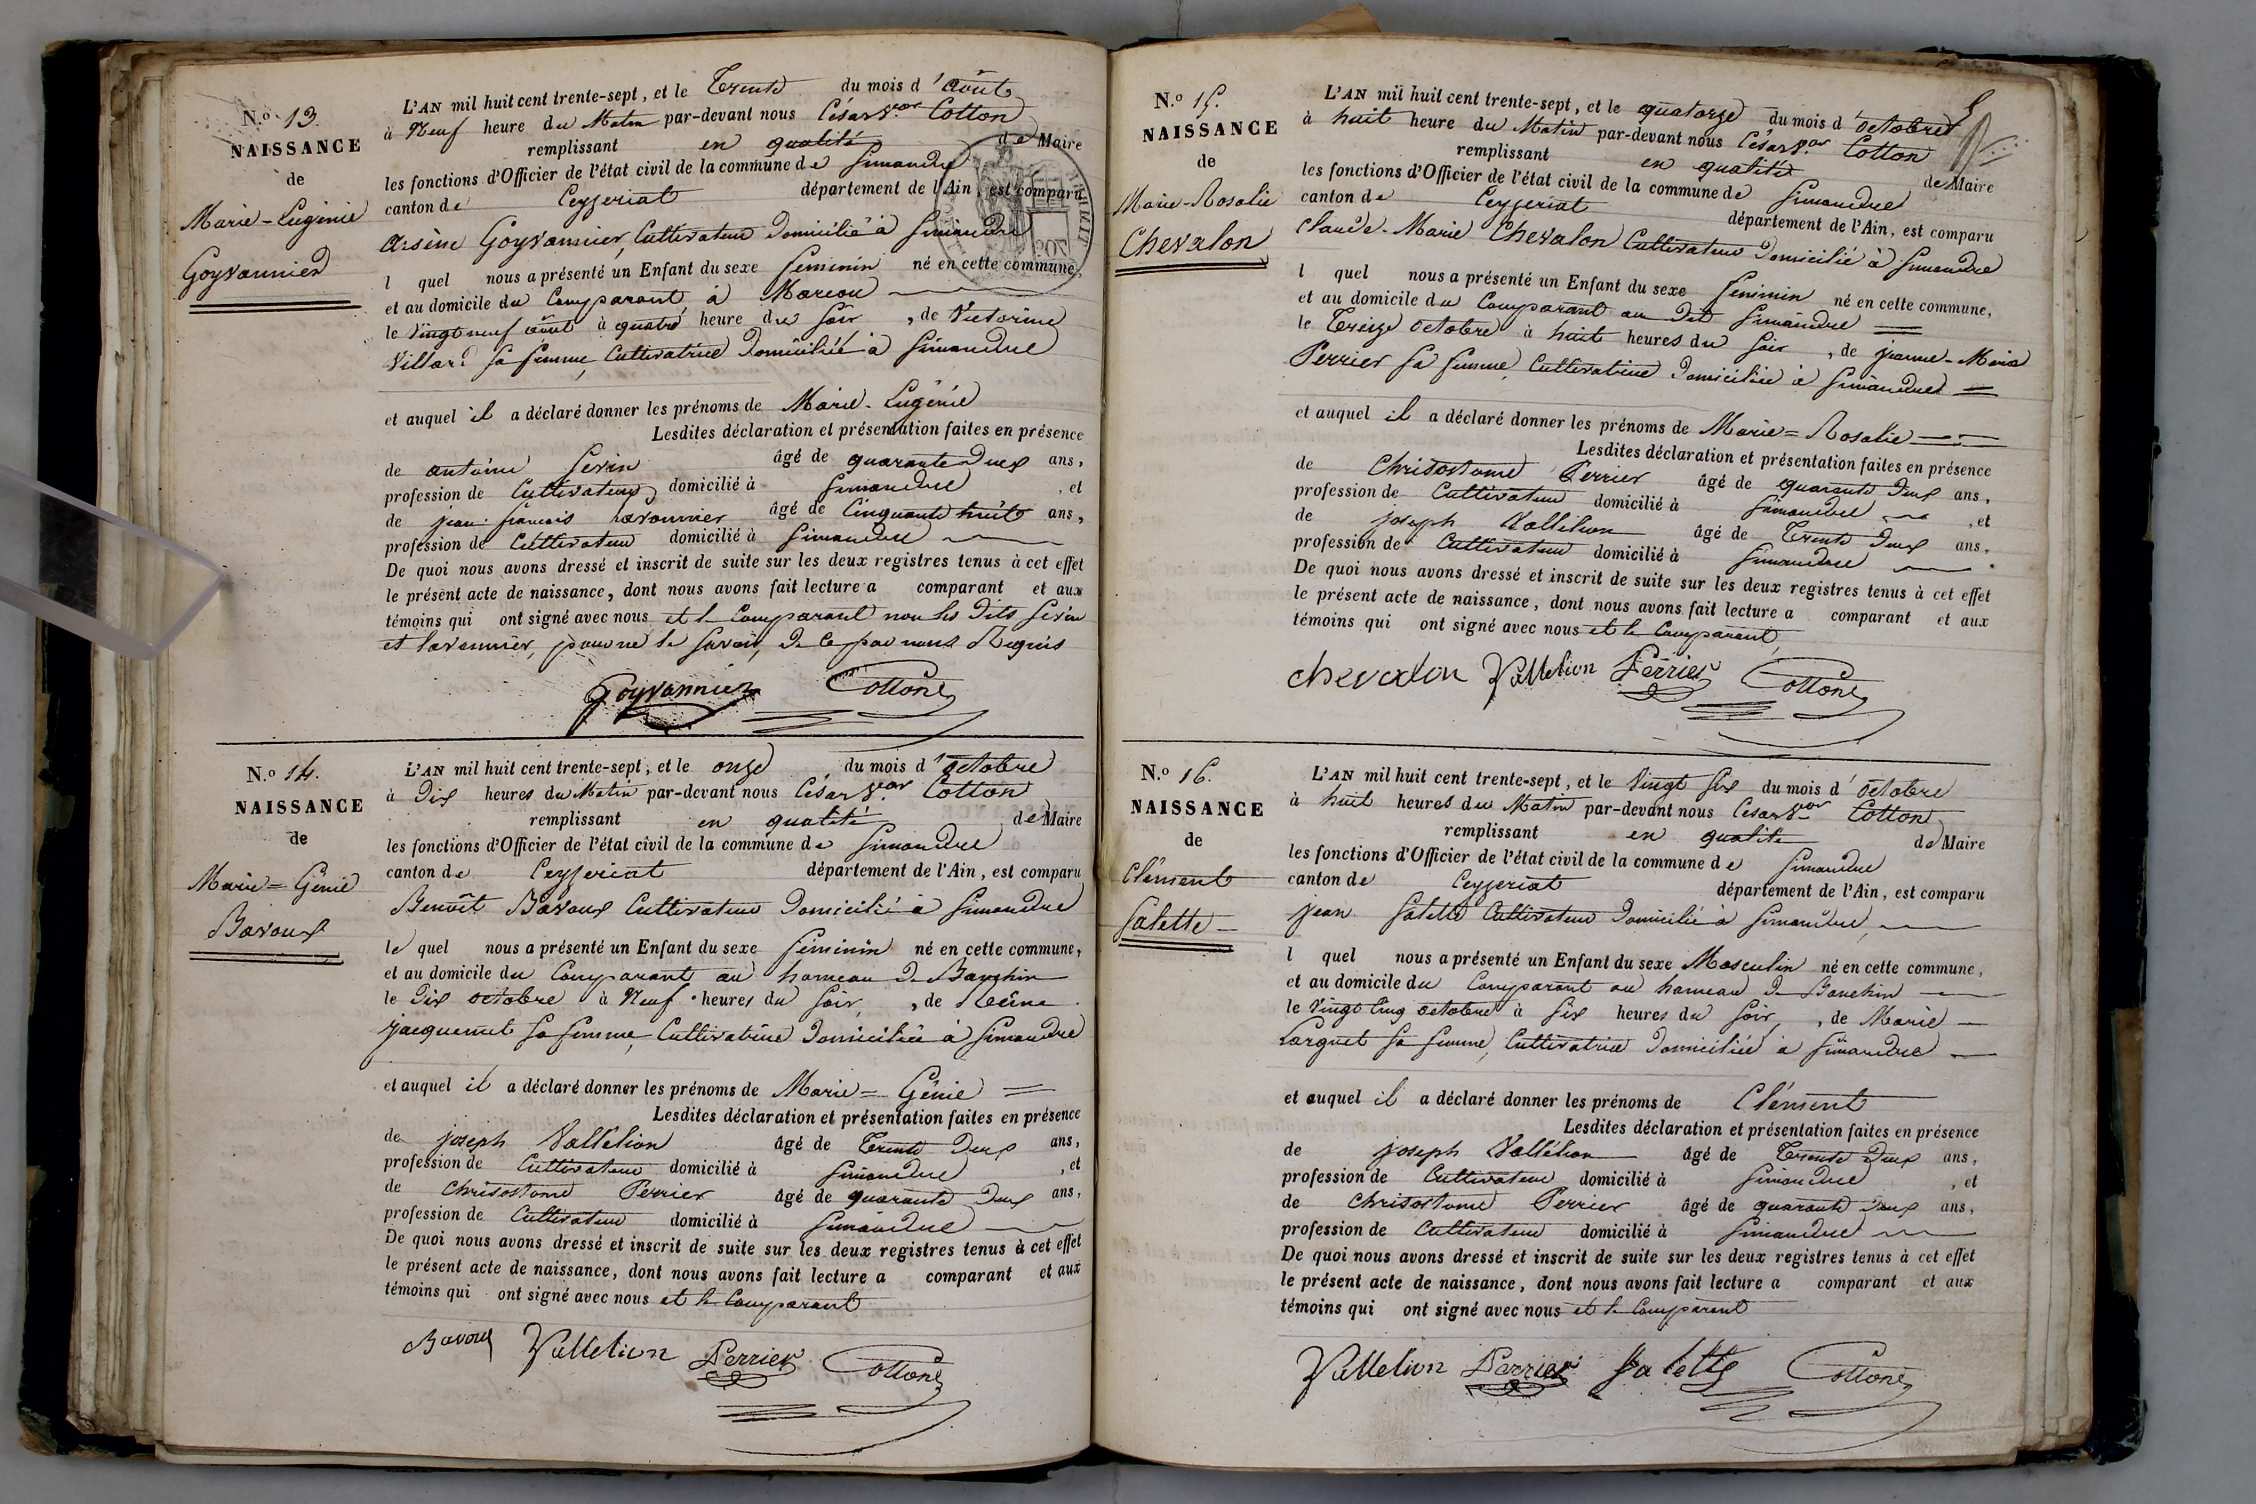 N.º 13.
NAISSANCE
de
Marie-Eugénie
Goyvannier
L'AN mil huit cent trente-sept, et le Trente du mois d'août
à Neuf heure du Matin par-devant nous César Vor Cotton
remplissant en qualité de Maire
les fonctions d'Officier de l'état civil de la commune de Simandre
canton de Ceyzeriat département de l'Ain, est comparu
Arsène Goyvannier, Cultivateur Domicilié à Simandre
l quel nous a présenté un Enfant du sexe feminin né en cette commune,
et au domicile du Comparant, à Marcou
le Vingt neuf août à quatre heure du soir, de Victorine
Villard sa femme, Cultivatrice Domiciliée à Simandre
et auquel il a déclaré donner les prénoms de Marie-Eugénie
Lesdites déclaration et présentation faites en présence
de antoine Sevin âgé de quarante Deux ans,
profession de Cultivateur, domicilié à Simandre, et
de jean-francois Lavonnier âgé de Cinquante huit ans,
profession de Cultivateur domicilié à Simandre
De quoi nous avons dressé et inscrit de suite sur les deux registres tenus à cet effet
le présent acte de naissance, dont nous avons fait lecture a comparant et aux
témoins qui ont signé avec nous et le Comparant non les Dits Sevin
et Lavonnier, pour ne le savoir, de ce par nous Requis
Goyvannier Cotton
N.º 14.
NAISSANCE
de
Marie=Génie
Bavoux
L'AN mil huit cent trente-sept, et le onze du mois d'octobre
à Dix heures du Matin par-devant nous César Vor Cotton
remplissant en qualité de Maire
les fonctions d'Officier de l'état civil de la commune de Simandre
canton de Ceyzeriat département de l'Ain, est comparu
Benoît Bavoux Cultivateur Domicilié à Simandre
le quel nous a présenté un Enfant du sexe féminin né en cette commune,
et au domicile du Comparant au hameau de Banchin
le Dix octobre à Neuf heures du soir, de Reine
jacquemet sa femme, Cultivatrice Domiciliée à Simandre
et auquel il a déclaré donner les prénoms de Marie=Génie =
Lesdites déclaration et présentation faites en présence
de joseph Vallélion âgé de Trente Deux ans,
profession de Cultivateur domicilié à Simandre, et
de Chrisostome Perrier âgé de quarante Deux ans,
profession de Cultivateur domicilié à Simandre
De quoi nous avons dressé et inscrit de suite sur les deux registres tenus à cet effet
le présent acte de naissance, dont nous avons fait lecture a comparant et aux
témoins qui ont signé avec nous et le Comparant
Bavoux Vallelion Perrier Cotton
N.º 15.
NAISSANCE
de
Marie-Rosalie
Chevalon
L'AN mil huit cent trente-sept, et le quatorze du mois d'octobre
à huit heure du Matin par-devant nous César Vor Cotton
remplissant en qualité de Maire
les fonctions d'Officier de l'état civil de la commune de Simandre
canton de Ceyzeriat département de l'Ain, est comparu
Claude-Marie Chevalon Cultivateur Domicilié à Simandre
l quel nous a présenté un Enfant du sexe feminin né en cette commune,
et au domicile du Comparant au dit Simandre =
le Treize octobre à huit heures du soir, de jeanne-Marie
Perrier sa femme, Cultivatrice Domiciliée à Simandre =
et auquel il a déclaré donner les prénoms de Marie=Rosalie
Lesdites déclaration et présentation faites en présence
de Chrisostome Perrier âgé de quarante Deux ans,
profession de Cultivateur domicilié à Simandre, et
de joseph Vallélion âgé de Trente Deux ans,
profession de Cultivateur domicilié à Simandre
De quoi nous avons dressé et inscrit de suite sur les deux registres tenus à cet effet
le présent acte de naissance, dont nous avons fait lecture a comparant et aux
témoins qui ont signé avec nous et le Comparant,
Chevalon Vallelion Perrier Cotton
N.º 16.
NAISSANCE
de
Clément
Salette
L'AN mil huit cent trente-sept, et le Vingt six du mois d'octobre
à huit heures du Matin par-devant nous César Vor Cotton
remplissant en qualité de Maire
les fonctions d'Officier de l'état civil de la commune de Simandre
canton de Ceyzeriat département de l'Ain, est comparu
jean Salette Cultivateur Domicilié à Simandre,
l quel nous a présenté un Enfant du sexe Masculin né en cette commune,
et au domicile du Comparant au hameau de Banchin
le Vingt Cinq octobre à six heures du soir, de Marie
Larguet sa femme, Cultivatrice Domiciliée à Simandre
et auquel il a déclaré donner les prénoms de Clément
Lesdites déclaration et présentation faites en présence
de joseph Vallélion âgé de Trente Deux ans,
profession de Cultivateur domicilié à Simandre, et
de Chrisostome Perrier âgé de quarante Deux ans,
profession de Cultivateur domicilié à Simandre
De quoi nous avons dressé et inscrit de suite sur les deux registres tenus à cet effet
le présent acte de naissance, dont nous avons fait lecture a comparant et aux
témoins qui ont signé avec nous et le Comparant
Vallelion Perrier Salette Cotton